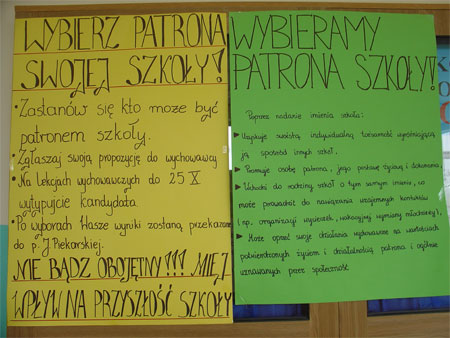 WYBIERZ PATRONA
SWOJEJ SZKOŁY!
• Zastanów się kto może być
patronem szkoły.
• Zgłaszaj swoją propozycję do wychowawcy
• Na lekcjach wychowawczych do 25 X
wytypujcie kandydata
• Po wyborach Wasze wyniki zostaną przekazane
do p. J. Piekarskiej.
NIE BĄDŹ OBOJĘTNY!!! MIEJ
WPŁYW NA PRZYSZŁOŚĆ SZKOŁY
WYBIERAMY
PATRONA SZKOŁY!
Poprzez nadanie imienia szkoła:
► Uzyskuje swoistą, indywidualną tożsamość wyróżniającą
ją spośród innych szkół.
► Promuje osobę patrona, jego postawę życiową i dokonania.
► Wchodzi do rodziny szkół o tym samym imieniu, co
może prowadzić do nawiązania wzajemnych kontaktów
(np. organizacji wycieczek, wakacyjnej wymiany młodzieży),
► Może oprzeć swoje działania wychowawcze na wartościach
potwierdzonych życiem i działalnością patrona i ogólnie
uznawanych przez społeczność.